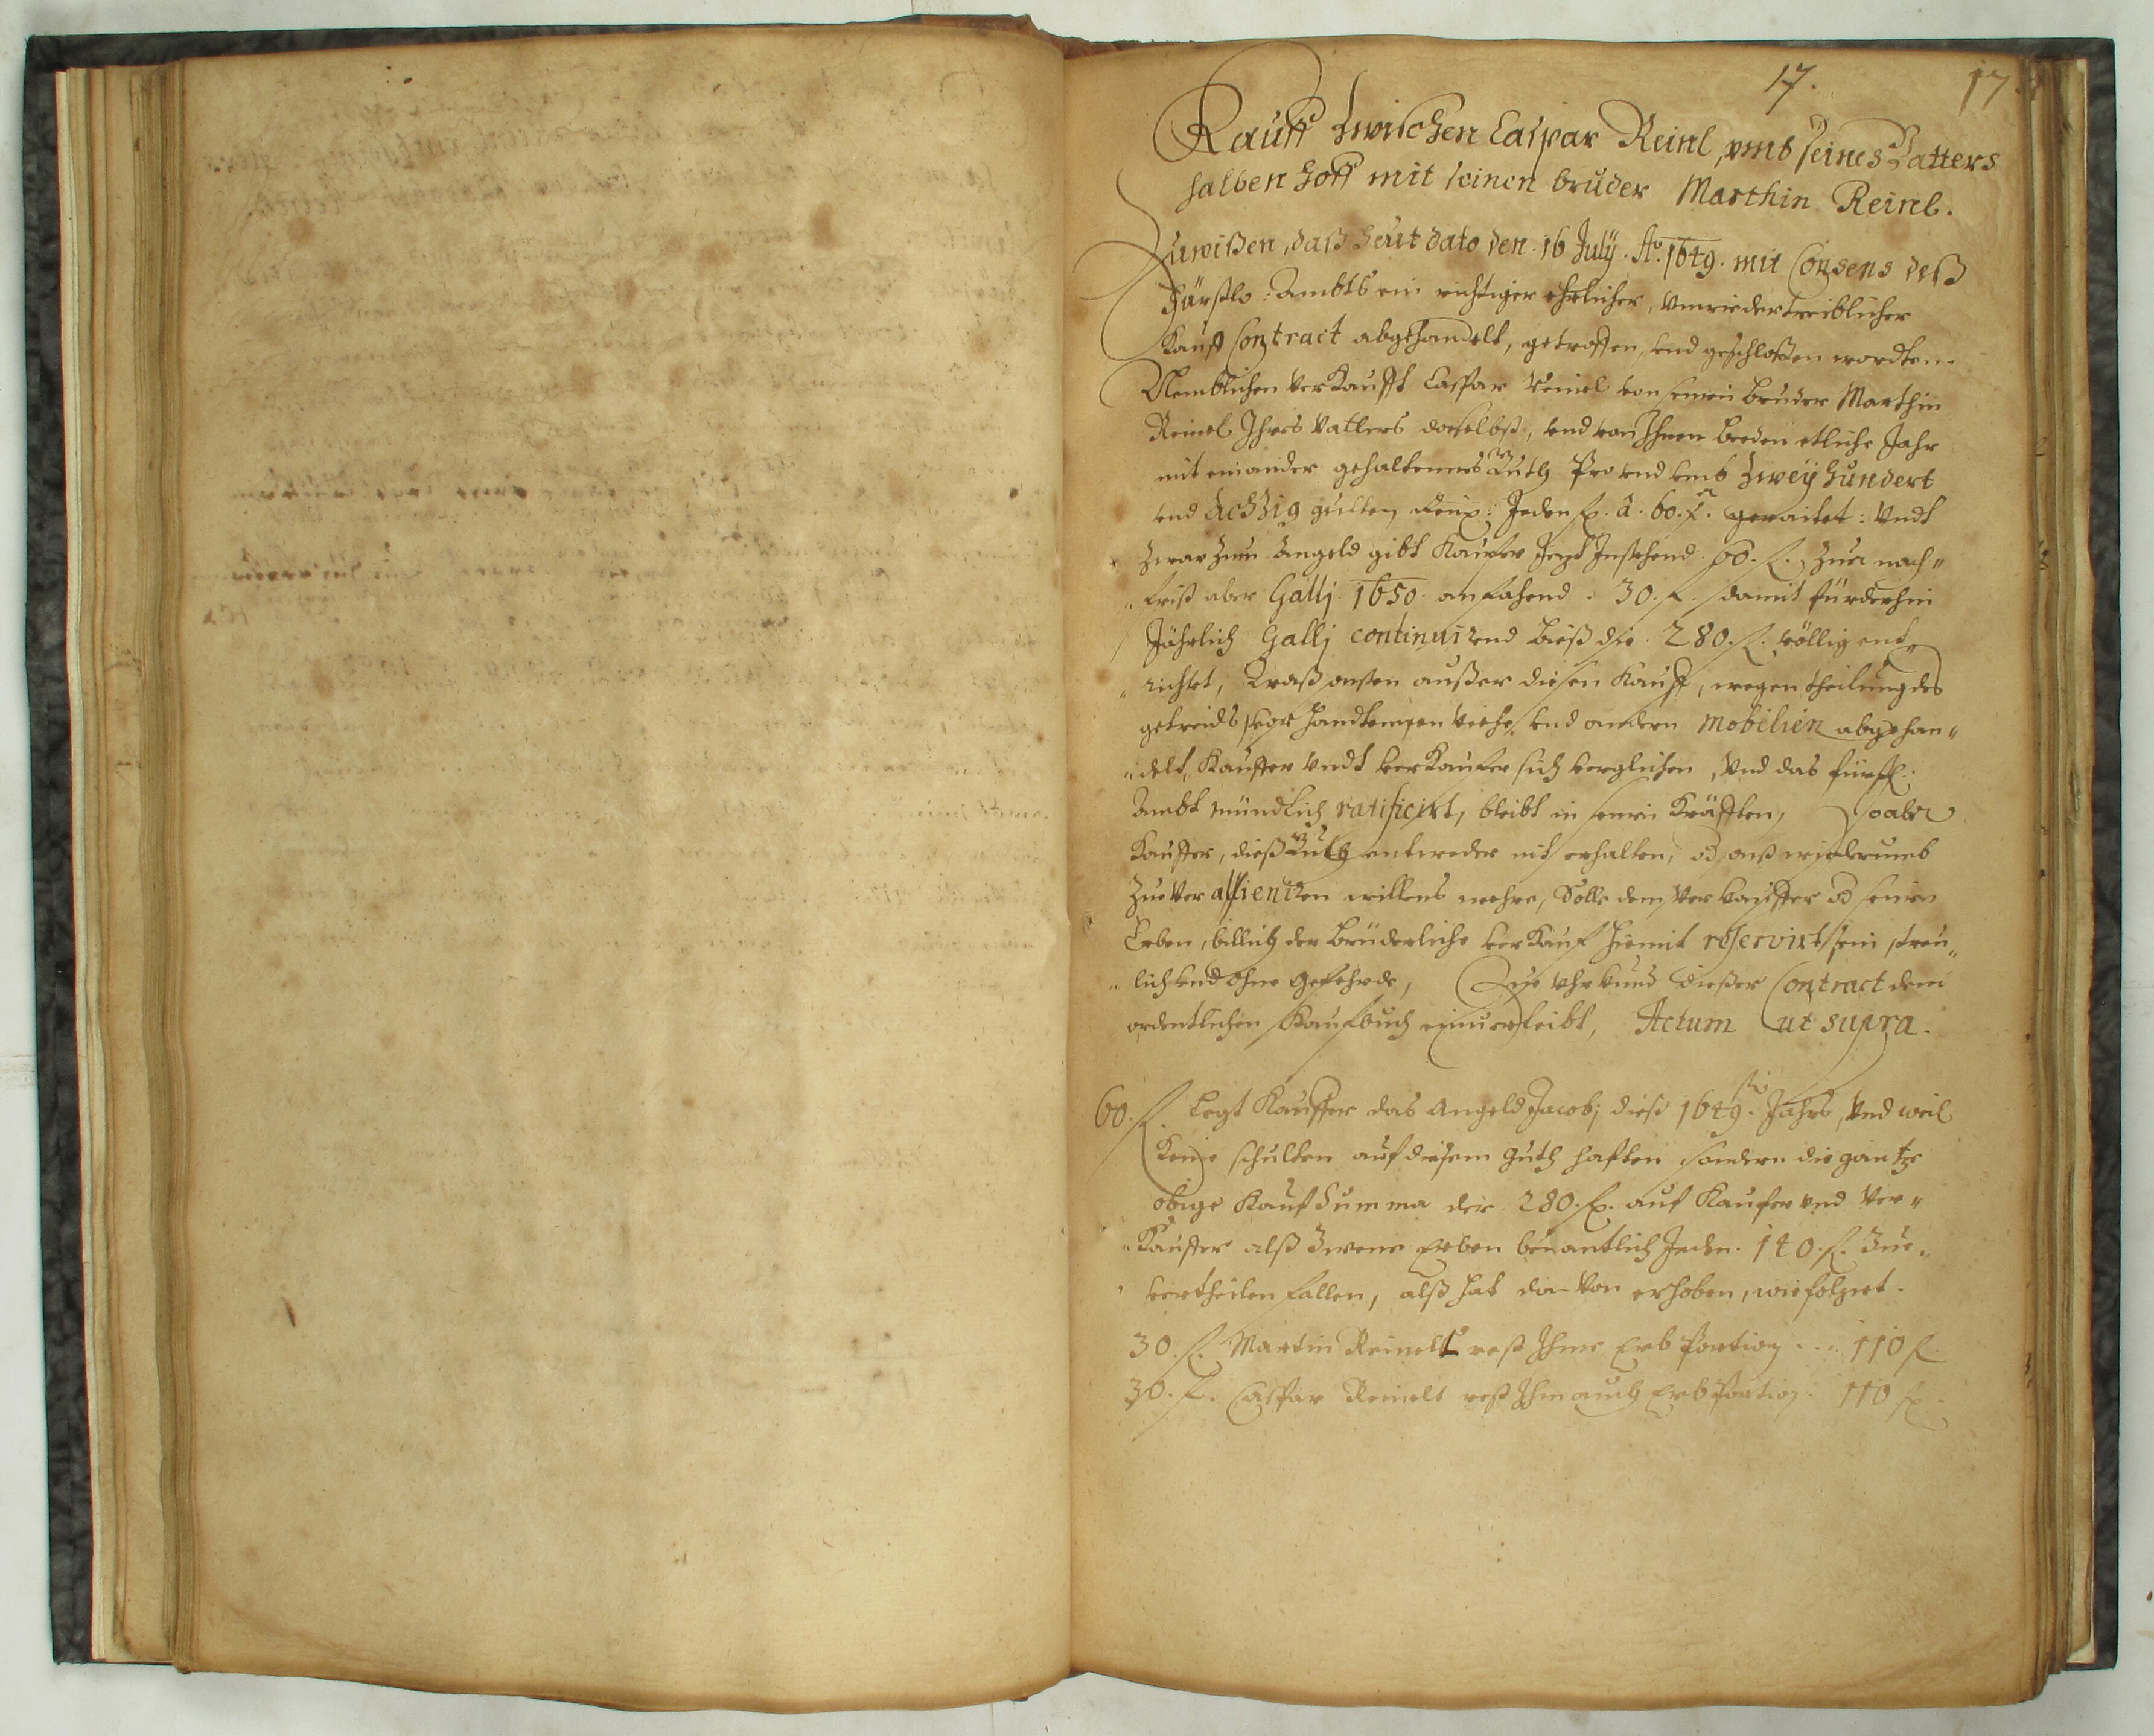 17. 17.
Kauff Zwischen Caspar Reinl, vmb seines Vatters
halben Hoff mit seinen bruder Marthin Reinl.
Zuwißen, daß heut dato den. 16 July. Ao. 1649. mit Consens deß
Fürstlo: Ambts ein richtiger ehrlicher, vnwiedertreiblicher
Kauff Contract abgehandelt, getroffen, vnd geschloßen wordten.
Nemblichen Verkaufft Caspar Reinel von seinen bruder Marthin
Reinel Ihres Vatters daselbst, vnd von Ihnen beeden etliche Jahr
mit einander gehaltennes Guth Pro vnd vmb Zwey Hundert
vnd Achzig gulten Jeden fl. â. 60. x. geraitet: Vndt
Zwar Zum Angeld gibt Kauffer Jezt Instehend. 60. fl. Zur nach"
"frist aber Gallj. 1650. anfahend. 30. fl. damit fürderhin
Jährlich Gallj continuirend bieß die. 280. fl. völlig ent"
"richtet, Waß onsten außer diesen Kauff, wegen theilung des
getreids vor handtenen Viehe, vnd andern Mobilien abgehan"
"delt, Kauffer vndt verkaufer sich verglichen, Vnd das fürstl:
Ambt mündtlich ratificirt, bleibt in seinen Kräfften, So aber
Kauffer, dieß Guth entweder nit erhalten, od onst wiederumb
Zu ver allieniren willens wehre, Solle dem Verkauffer od seinen
Erben, billich der Brüderliche vor Kauf hiemit reservirt sein treu"
"lich vnd ohne gefehrde, Zue Vhrkund dießer Contract dem
ordentlichen Kaufbuch einuerleibt, Actum ut supra.
60. fl. Legt Kauffer das Angeld Jacobj dieß 1649. Jahrs, Vnd weil
Keine schulten auf diesem Guth haften sondern die gantze
obige Kauf Summa der. 280. fl. auf Kaufer vnd Ver"
"Kauffer alß Zwene Erben benantlich Jeden. 140. fl. Zue"
"vertheilen fallen, alß hat da Von erhoben, wie folget.
30. fl. Martin Reinelt rest Ihme Erb Portion. . . 110 fl
30. fl. Caspar Reinelt rest Ihm auch Erb Portion. 110 fl.